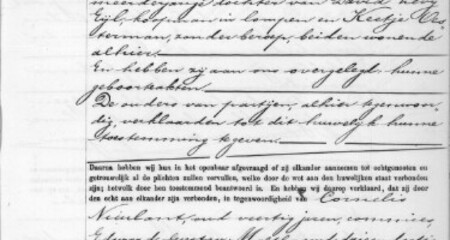 meerderjarige dochter van David Levy
Eijl, koopman in lompen en Keetje Os
terman, zonder beroep, beiden wonende
alhier.
En hebben zij aan ons overgelegd hunne
geboorteakten
De ouders van partijen, alhier tegenwoor-
dig, verklaarden tot dit huwelijk hunne
toestemming te geven.
Daarna hebben wij hun in het openbaar afgevraagd of zij elkander aannemen tot echtgenooten en
getrouwelijk al de plichten zullen vervullen, welke door de wet aan den huwelijken staat verbonden
zijn; hetwelk door hen toestemmend beantwoord is. En hebben wij daarop verklaard, dat zij door
den echt aan elkander zijn verbonden, in tegenwoordigheid van Cornelis
Nieuwland, oud veertig jaren, commies,